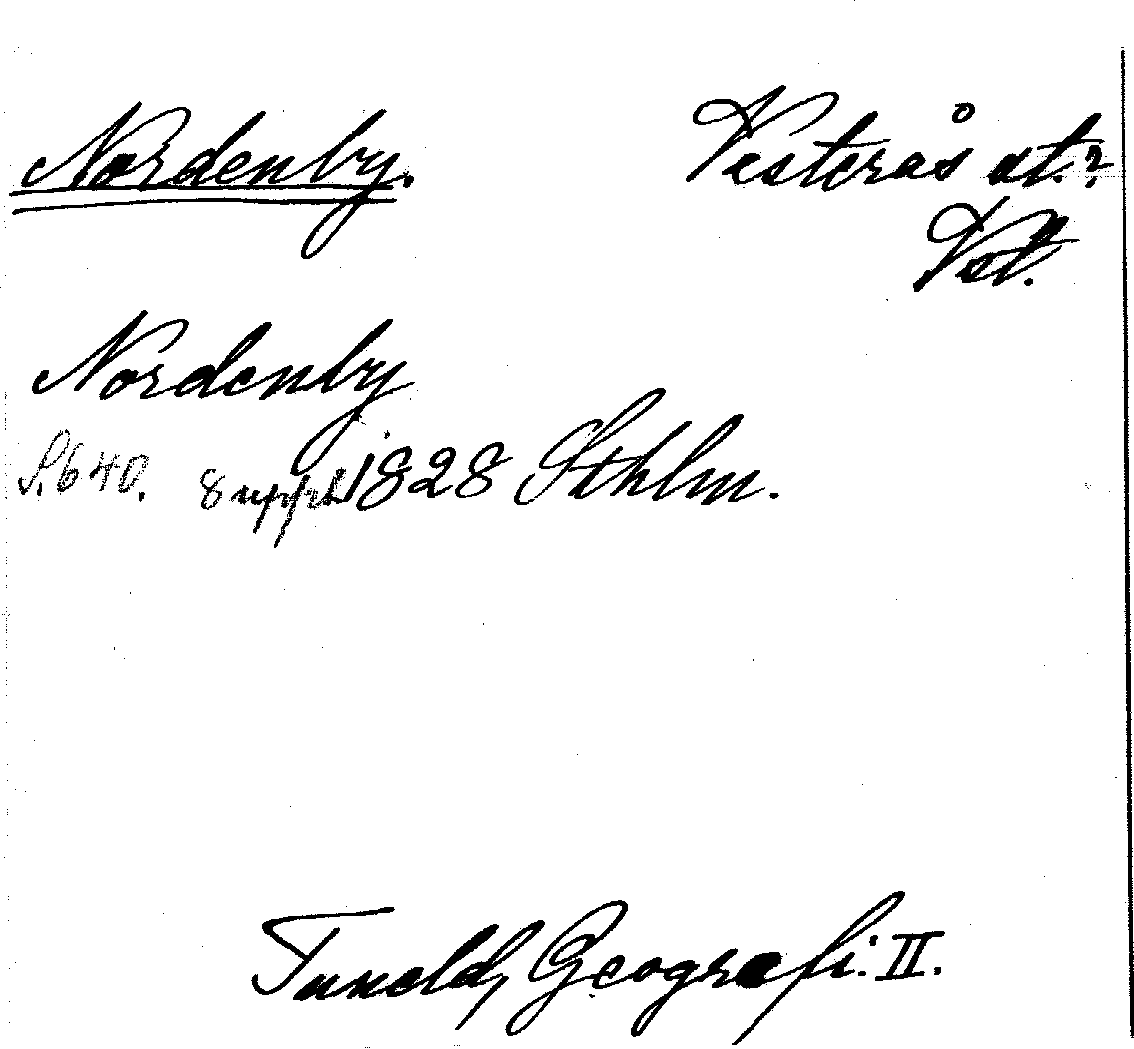 Nordenby.
Vesterås st.?
Vst.
Nordenby
S. 640. 8 uppl. 1828 Sthlm.
Tuneld, Geografi. II.